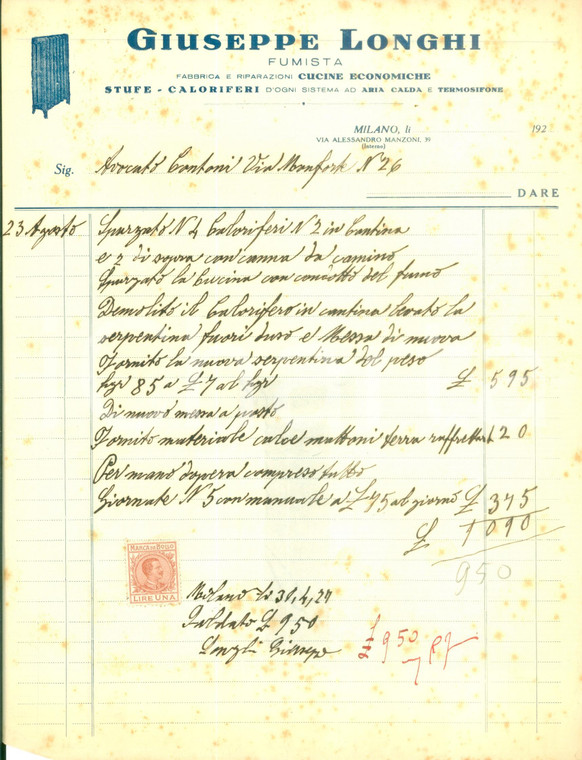 GIUSEPPE LONGHI
FUMISTA
FABBRICA E RIPARAZIONI CUCINE ECONOMICHE
STUFE - CALORIFERI D'OGNI SISTEMA AD ARIA CALDA E TERMOSIFONE
MILANO, li 192
VIA ALESSANDRO MANZONI, 39
(Interno)
Sig. Avocato Contoni Via Monforte N 26
DARE
23 Agosto Spurzato N 4 Caloriferi N 2 in Cantina
e 2 di sopra con canna da camino
Spurzato la Cucina con condotto del fumo
Demolito il Calorifero in cantina levato la
serpentina fuori duso e Messa di nuova
Fornito la nuova serpentina del peso
kgr 85 a £ 7 al kgr £ 595
Di nuovo messa a posto
Fornito materiale calce mattoni terra 120
Per mano dopera compreso tutto
Giornate N 5 con manuale a £ 75 al giorno £ 375
£ 1090
950
MARCA DA BOLLO
LIRE UNA
Milano li 30, 4, 27
Saldato £ 950
Longhi Giuseppe
£ 950